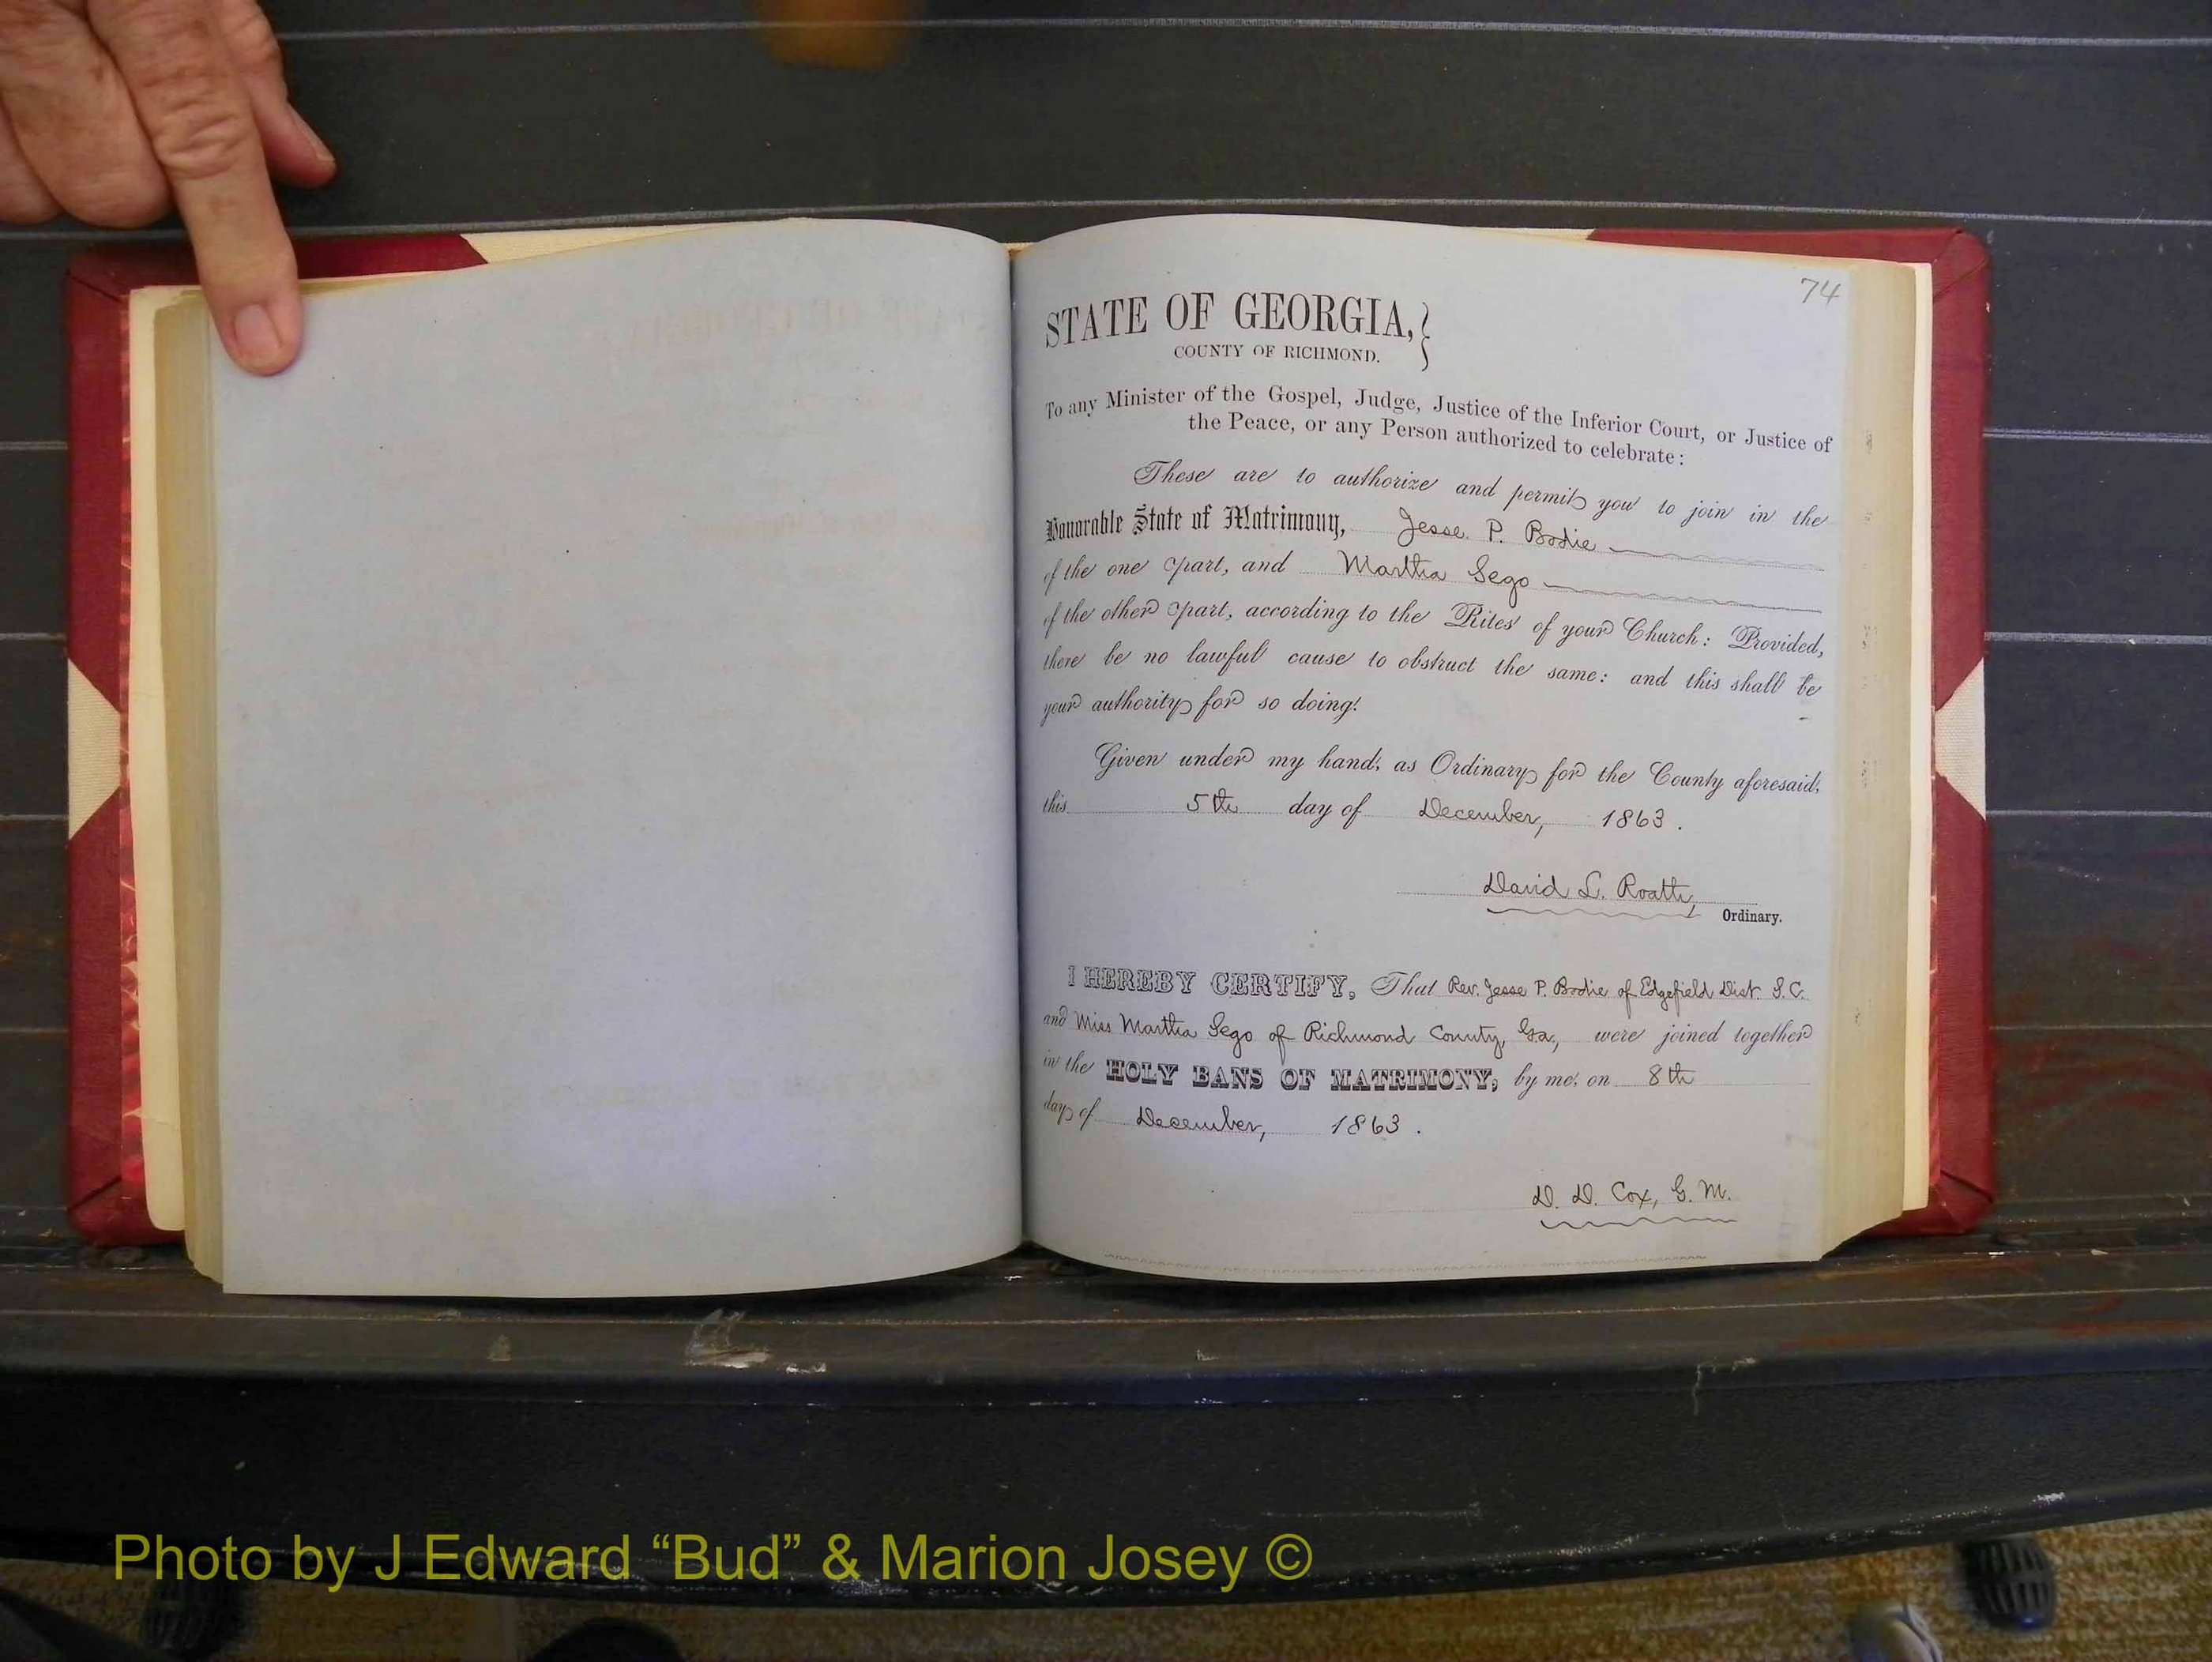 74
STATE OF GEORGIA,}
COUNTY OF RICHMOND.
To any Minister of the Gospel, Judge, Justice of the Inferior Court, or Justice of
the Peace, or any Person authorized to celebrate:
These are to authorize and permit you to join in the
Honorable State of Matrimony, Jesse. P. Bodie
of the one part, and Martha Sego
of the other part, according to the Rites of your Church: Provided,
there be no lawful cause to obstruct the same: and this shall be
your authority for so doing.
Given under my hand, as Ordinary for the County aforesaid,
this 5th day of December, 1863.
David L. Roath,
Ordinary.
I HEREBY CERTIFY, That Rev. Jesse P. Bodie of Edgefield Dist. S.C.
and Miss Martha Sego of Richmond County, Ga., were joined together
in the HOLY BANS OF MATRIMONY, by me, on 8th
day of December, 1863.
D. D. Cox, G. M.
Photo by J Edward “Bud” & Marion Josey ©